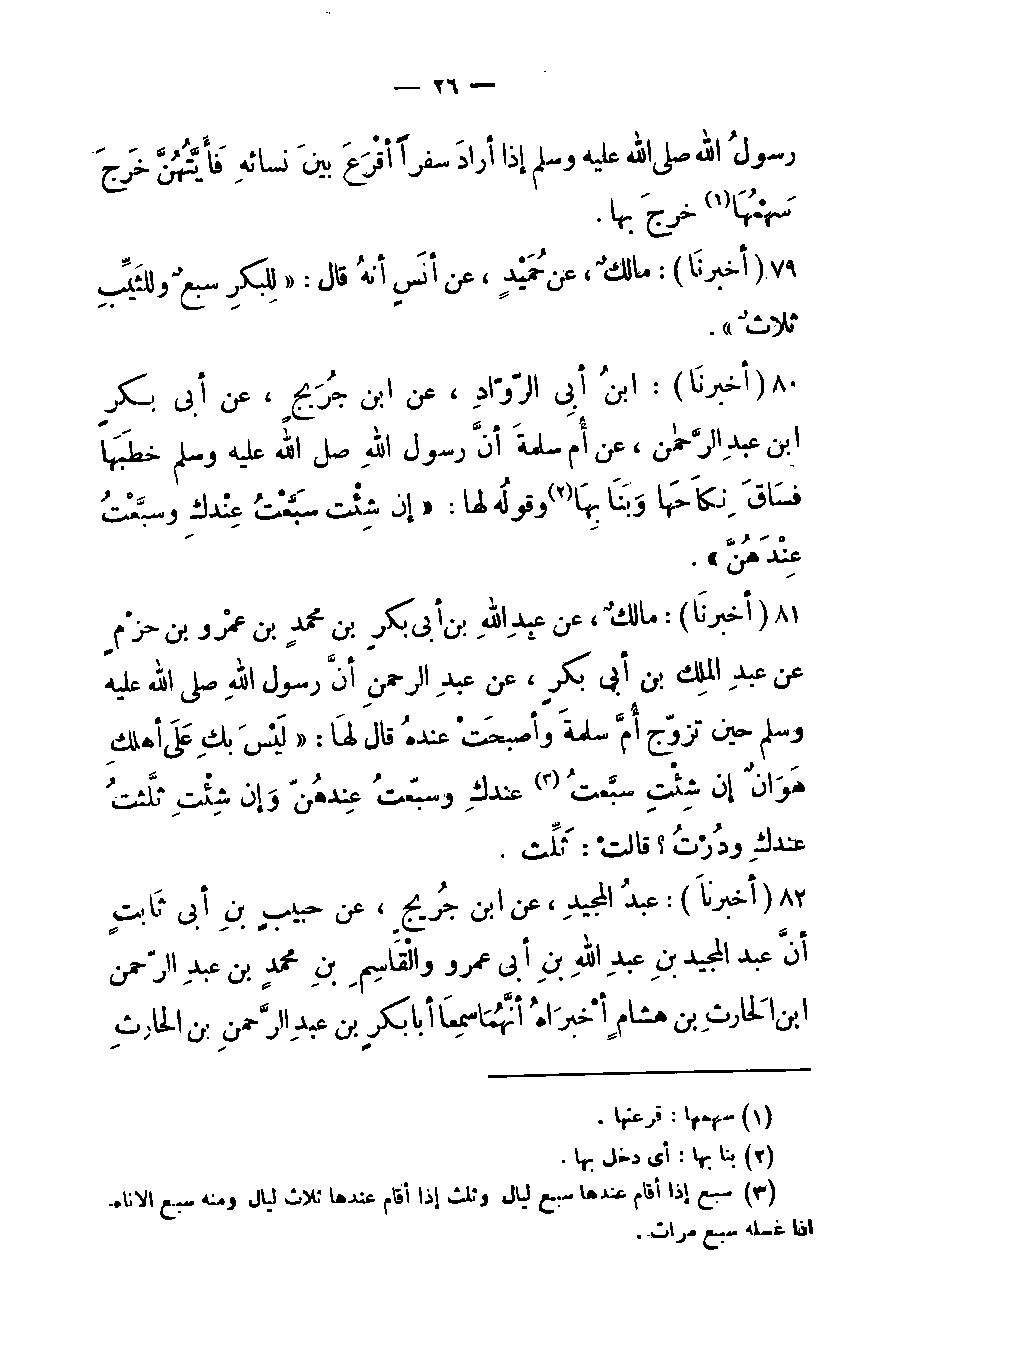 — ٢٦ —
رسولُ الله صلى الله عليه وسلم إذا أرادَ سفراً أقْرَعَ بينَ نسائهِ فَأَيَّتُهُنَّ خَرجَ
سَهْمُهَا(١) خرجَ بها .
٧٩ (أخبرنَا) : مالكٌ ، عن حُمَيْدٍ ، عن أنَسٍ أنهُ قال : « لِلبكرِ سبعٌ وللثَيِّبِ
ثلاثٌ » .
٨٠ (أخبرنَا) : ابنُ أبِى الرّوّادِ ، عن ابن جُرَيجٍ ، عن أبى بكرٍ
ابن عبدِ الرَّحمٰن ، عن أُم سلمةَ أنَّ رسول اللهِ صل الله عليه وسلم خطبَهَا
فسَاقَ نِكاَحَها وَبَنَا بِهَا(٢) وقولُه لها : « إن شِئْت سَبَّعْتُ عِنْدكِ وسبَّعْتُ
عِنْدَهُنَّ » .
٨١ (أخبرنَا) : مالكٌ ، عن عبدِ اللهِ بن أبى بكرٍ بن محمدٍ بن عمْرو بن حزْمٍ
عن عبدِ الملِك بن أبي بكرٍ ، عن عبدِ الرحمنِ أنَّ رسول اللهِ صلى الله عليه
وسلم حين تزوّج أُمَّ سلمةَ وأصبحَتْ عندهُ قال لهَا : « لَيْسَ بكِ عَلَى أهلكِ
هَوَانٌ إن شِئْتِ سبَّعتُ (٣) عندكِ وسبّعتُ عِندهُنّ وَإن شِئْتِ ثلَّثتُ
عندكِ ودُرْتُ ؟ قالتْ : ثَلِّث .
٨٢ (أخبرنَا) : عبدُ المجيدِ ، عن ابن جُريجٍ ، عن حبيبِ بنِ أبى ثابتٍ
أنَّ عبد المجيد بنِ عبدِ اللهِ بنِ أبى عمرو والْقَاسِمِ بنِ محمدٍ بن عبدِ الرّحمن
ابن الحَارثِ بن هشامٍ أخْبرَاهُ أنَّهُمَا سمِعَا أبا بكرِ بن عبدِ الرَّحمنِ بن الحارِثِ
(١) سهمها : قرعتها .
(٢) بنا بها : أى دخل بها .
(٣) سبع إذا أقام عندها سبع ليال وثلث إذا أقام عندها ثلاث ليال ومنه سبع الاناء
اذا غسله سبع مرات .